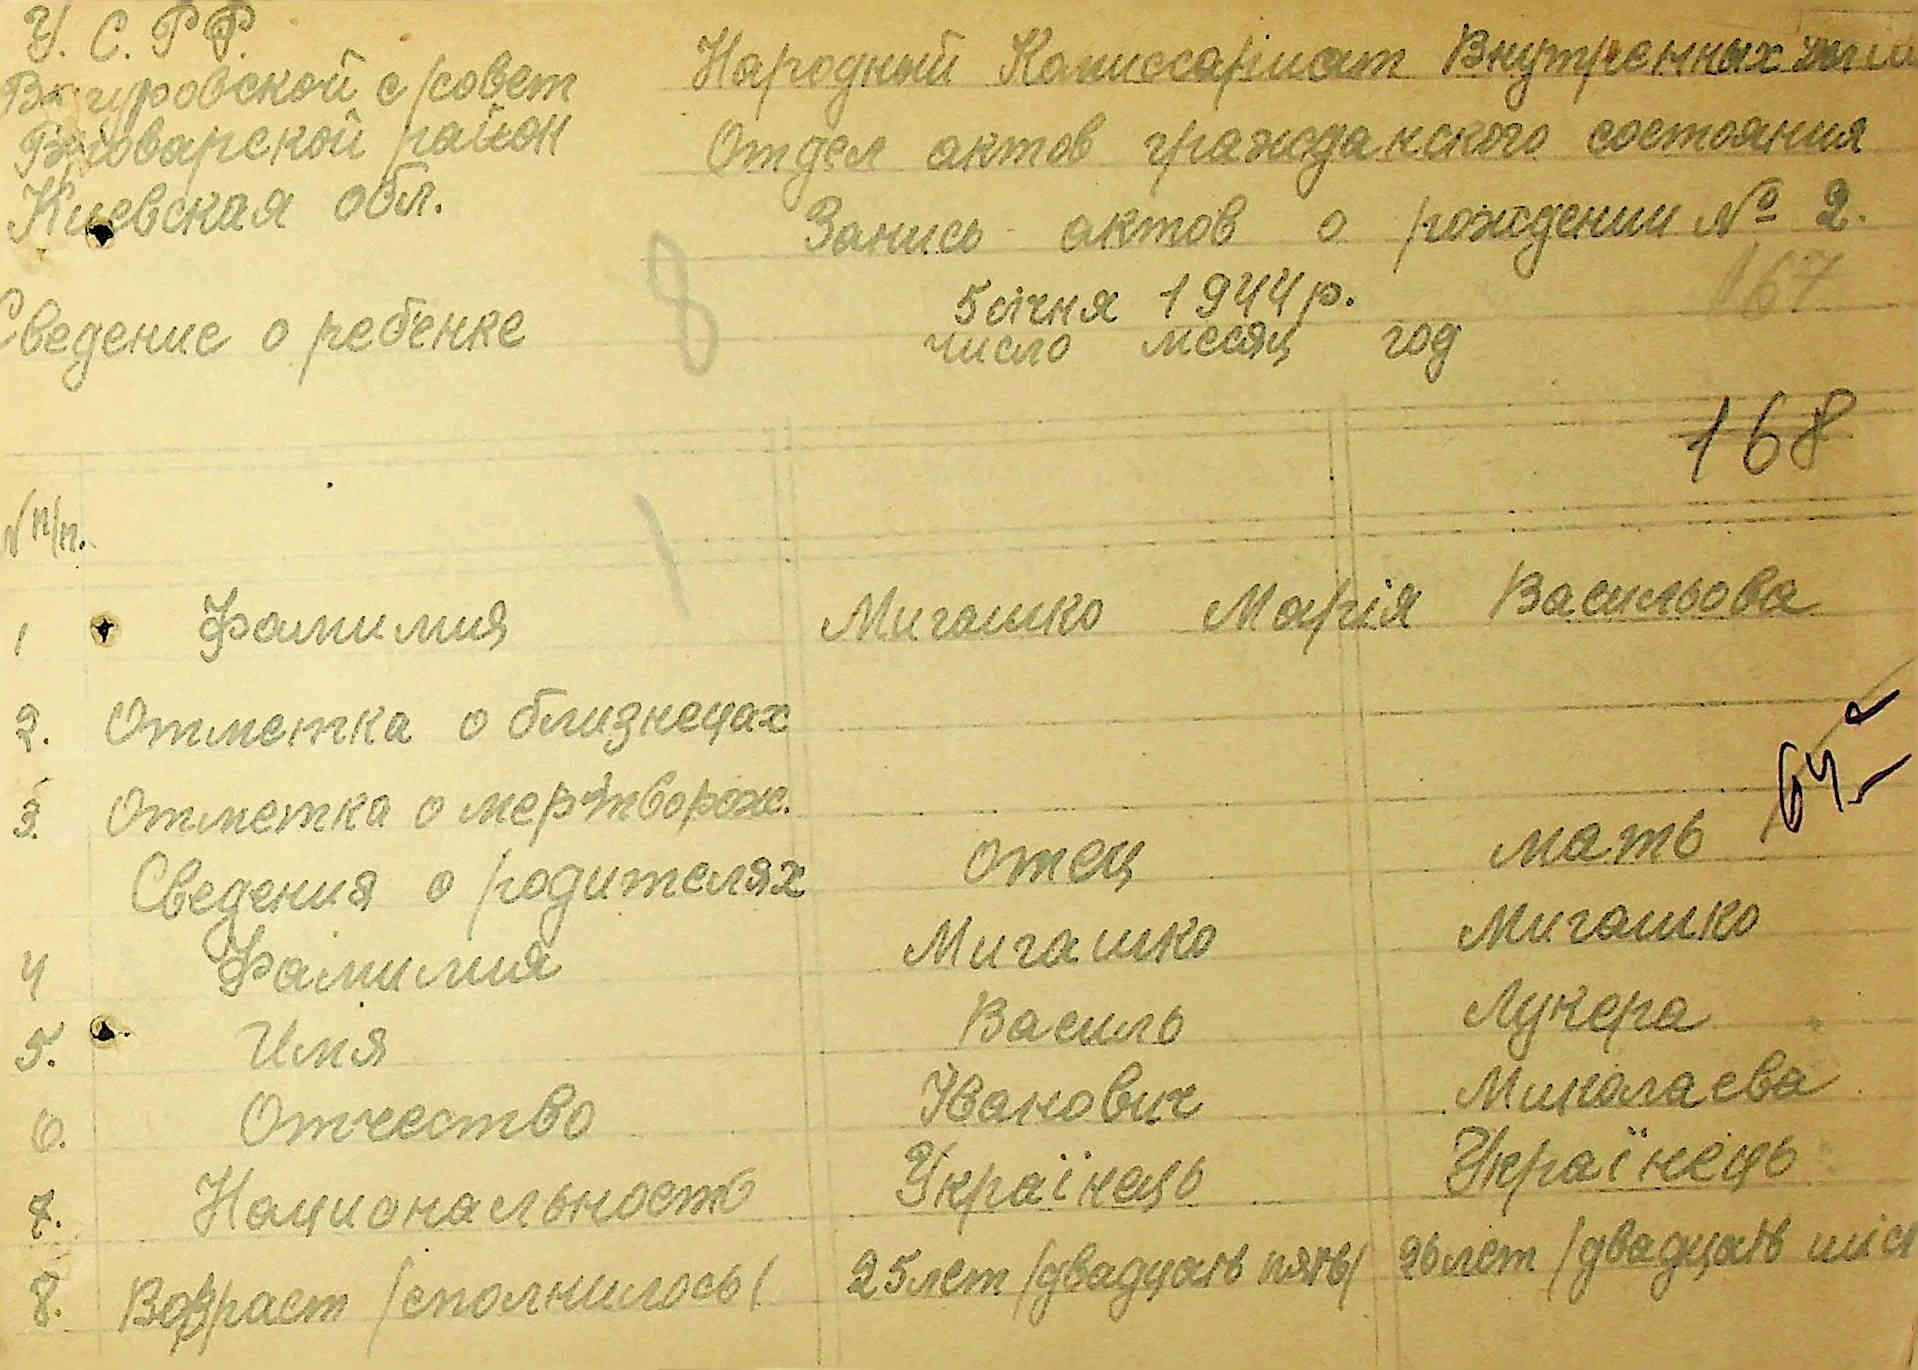 У. С. Р Р.
Вигуровской с/совет
Броварской район
Киевская обл.
Народный Комиссариат Внутренных
Отдел актов гражданского состояния
Запись актов о рождении № 2.
167
8
5 січня 1944 р.
Сведение о ребенке
число месяц год
168
№ п/п.
1
1 Фамилия Мигашко Марія Васильова
2. Отметка о близнецах
3. Отметка о мертворож.
64
Сведения о родителях отец мать
4 Фамилия Мигашко Мигашко
5. Имя Василь Лукера
6. Отчество Іванович Миколаева
7. Национальность Українець Українець
8. Возраст /сполнилось/ 25 лет /двадцать пять/ 26 лет /двадцать шіст